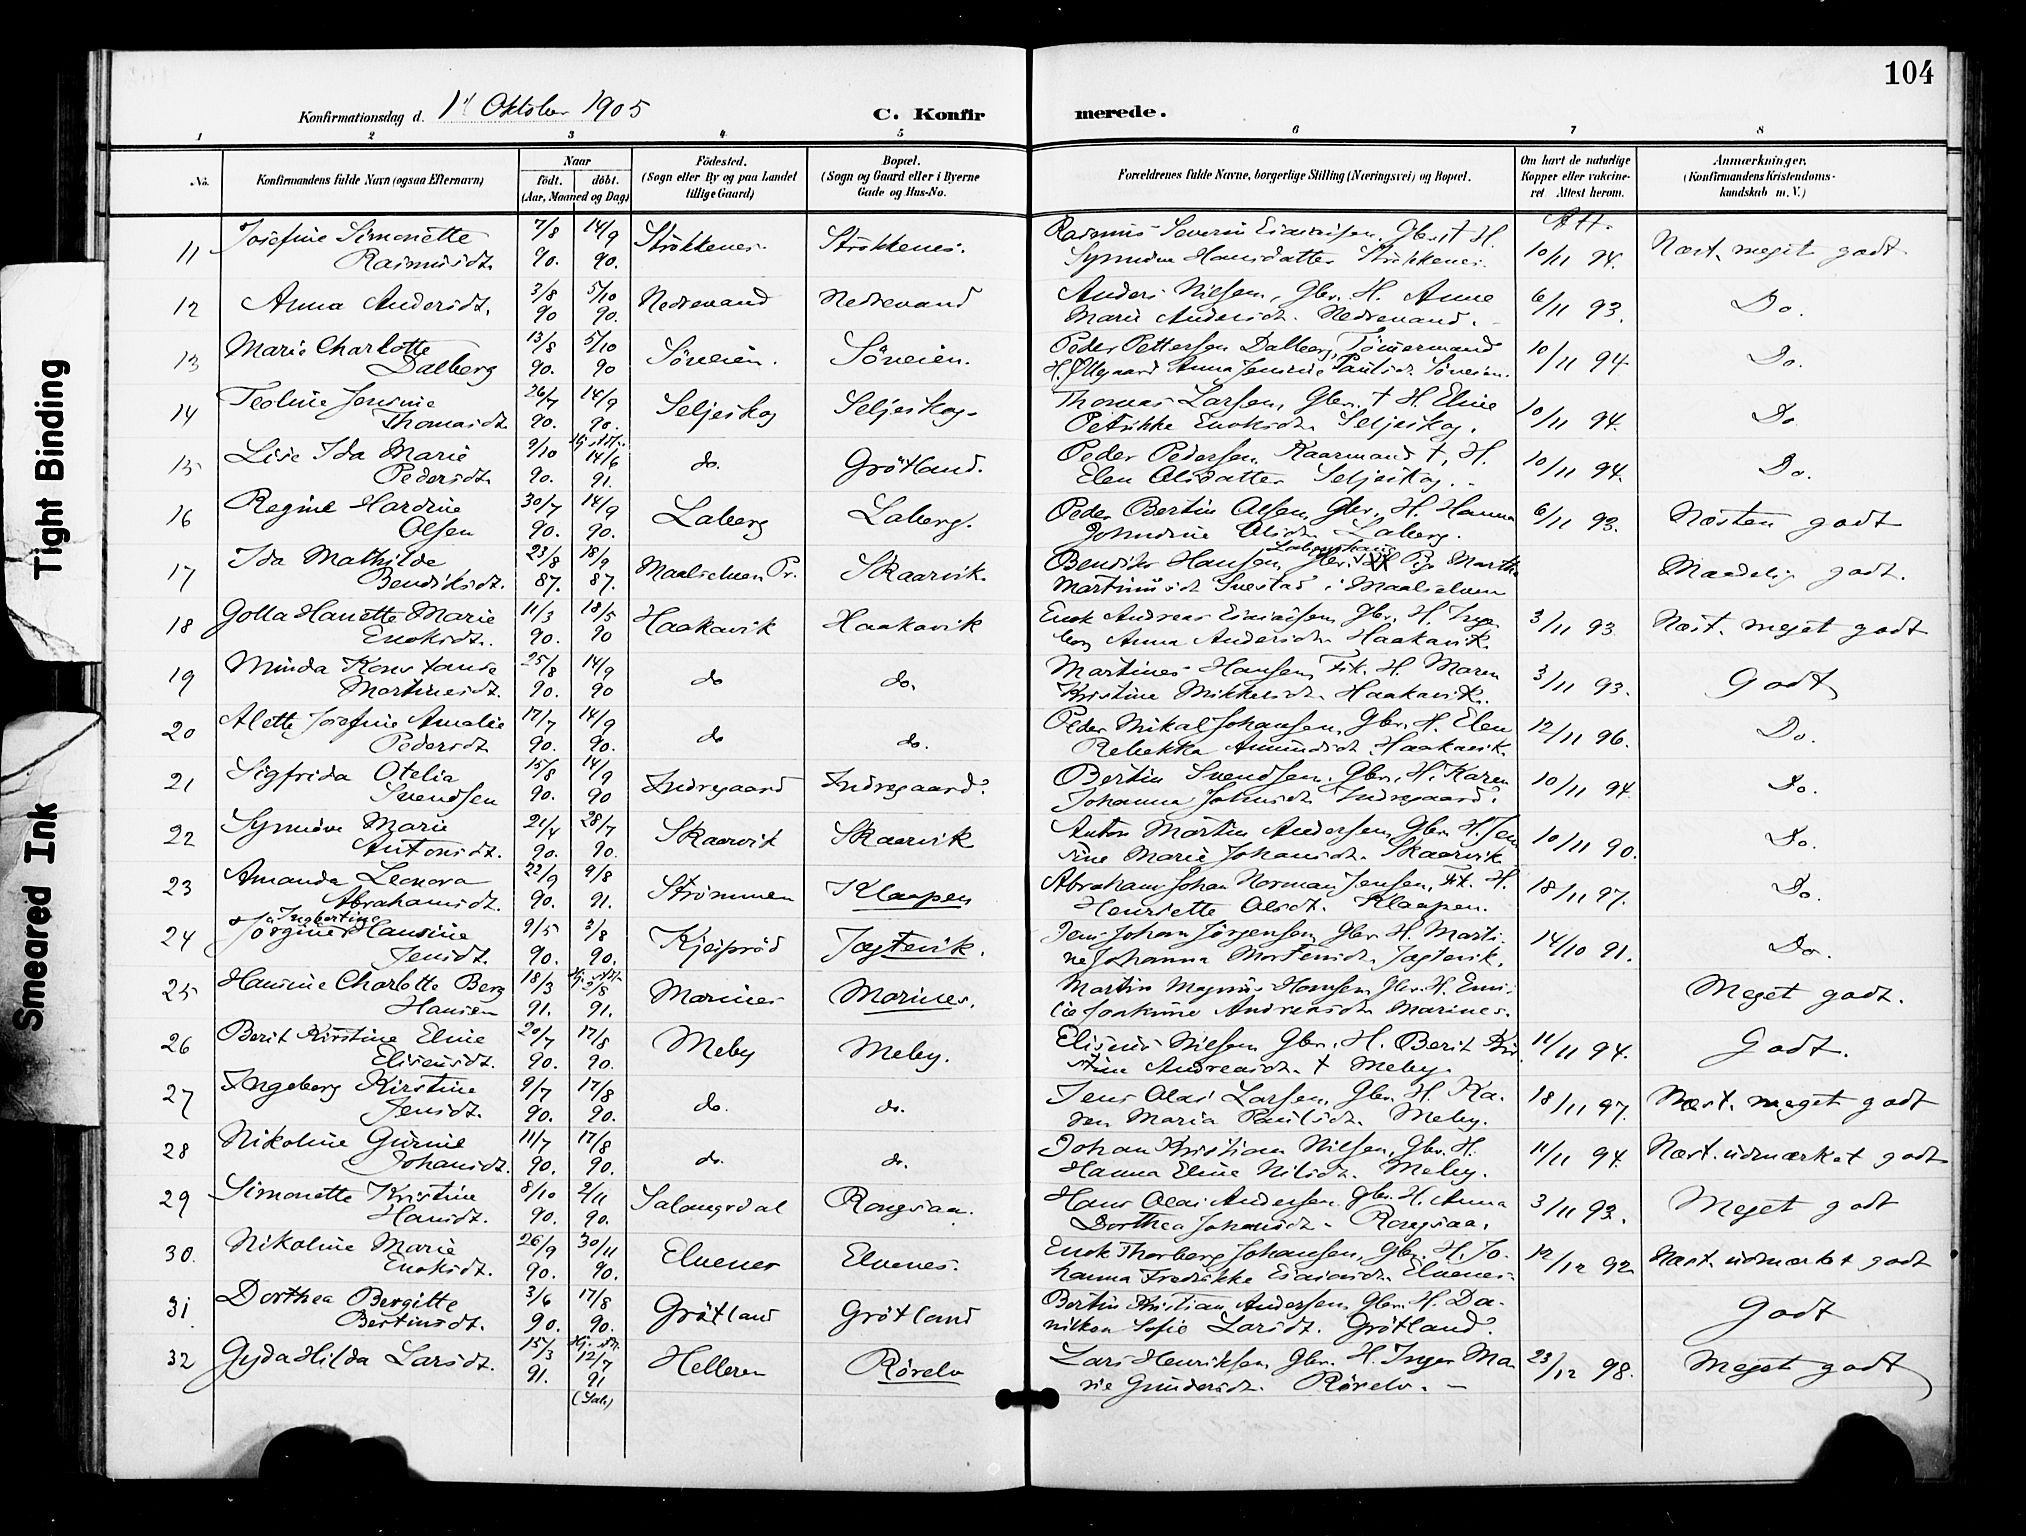 104
Konfirmationsdag d. 1ste Oktober 1905
C. Konfirmerede.
1 2 3 4 5 6 7 8
No.
Konfirmandens fulde Navn (ogsaa Efternavn)
Naar
födt. döbt.
(Aar, Maaned og Dag)
Födested.
(Sogn eller By og paa Landet
tillige Gaard)
Bopæl.
(Sogn og Gaard eller i Byerne
Gade og Hus-No.
Forældrenes fulde Navne, borgerlige Stilling (Næringsvei) og Bopæl.
Om havt de naturlige
Kopper eller vakcine-
ret Attest herom.
Anmærkninger.
(Konfirmandens Kristendoms-
kundskab m. V.)
11 Josefine Simonette 7/8 14/9 Strökkenes. Strökkenes. Rasmus Severin Esaiassen, Gbr. † H. Att.
Rasmusdt. 90. 90. Synnöve Hansdatter Strökkenes. 10/11 94. Næst. meget godt
12 Anna Andersdt. 3/8 5/10 Nedrevand Nedrevand Anders Nilsen, Gbr. H. Anne 6/11 93. Do.
90 90. Marie Andersdt. Nedrevand.
13 Marie Charlotte 13/8 5/10 Söveien. Söveien. Peder Pettersen Dalberg, Tömermand 10/11 94. Do.
Dalberg 90. 90 H. Anna Jensine Paulsdt. Söveien.
14 Teoline Jensine 26/7 14/9 Seljeskog Seljeskog. Thomas Larsen, Gbr. † H. Eline 10/11 94. Do.
Thomasdt. 90. 90. Petrikke Enoksdt. Seljeskog.
15 Lise Ida Marie 9/10 Hj. döbt. 14/6 do. Grötland. Peder Pedersen, Kaarmand †, H. 10/11 94. Do.
Pedersdt. 90. 91. Elen Olsdatter Seljeskog.
16 Regine Hardine 30/7 14/9 Laberg Laberg. Peder Bertin Olsen, Gbr. H. Hanna 6/11 93. Næsten godt
Olsen 90. 90. Olsdt. Laberg.
17 Ida Mathilde 23/8 18/9 Maalselven Pr. Skaarvik. Bendik Hansen, Gbr. Pige Martha Maadelig godt.
Bendiksdt. 87. 87. Martinusdt i Maalselven
18 Golla Hanette Marie 11/3 18/5 Haakavik Haakavik Enok Andreas Esaiassen, Gbr. H. Inge- 3/11 93 Næst. meget godt
Enoksdt. 90. 90 borg Anna Andersdt. Haakavik.
19 Minda Konstanse 25/8 14/9 do do. Martines Hansen, Fisk. H. Maren 3/11 93. Godt
Martinesdt. 90. 90 Kristine Mikkelsdt. Haakavik.
20 Alette Josefine Amalie 17/7 14/9 do do. Peder Mikal Johansen, Gbr. H. Elen 12/11 96. Do.
Pedersdt 90. 90. Rebekka Amundsdt. Haakavik.
21 Sigfrida Otelia 15/8 14/9 Indregaard Indregaard. Bertin Svendsen, Gbr. H. Karen 10/11 94. Do.
Svendsen 90. 90 Johanna Johnsdt. Indregaard.
22 Synnöve Marie 21/4 28/7 Skaarvik Skaarvik Anton Martin Andersen, Gbr. H. Jen- 10/11 90. Do.
Antonsdt. 90. 90. sine Marie Johansdt. Skaarvik
23 Amanda Leonora 22/9 9/8 Strömmen Klaapen Abraham Johan Norman Jensen, Fisk. H. 18/11 97. Do.
Abrahamsdt. 90. 91. Henriette Olsdt. Klaapen.
24 Jörgine Ingbertine Hansine 9/5 3/8 Kjeipröd Jægtevik. Jens Johan Jörgensen, Gbr. H. Marti- 14/10 91. Do.
Jensdt. 90. 90. ne Johanna Mortensdt. Jægtevik.
25 Hansine Charlotte Berg 18/3 Hj. döbt. 2/8 Marines Marines. Martin Magnus Hansen, Gbr. H. Emi- Meget godt.
Hansen 91. 91. lie Joakime Andreasdt. Marines.
26 Berit Kirstine Eline 20/7 17/8 Meby Meby. Eliseus Nilsen, Gbr. H. Berit Kir- 11/11 94. Godt.
Eliseusdt. 90. 90. stine Andreasdt. † Meby.
27 Ingeborg Kirstine 9/7 17/8 do. do. Jens Olai Larsen, Gbr. H. Ka- 18/11 97. Næst. meget godt
Jensdt. 90. 90. ren Maria Paulsdt. Meby.
28 Nikoline Gurine 11/7 17/8 do. do. Johan Kristian Nilsen, Gbr. H. 11/11 94. Næst. udmærket godt
Johansdt. 90. 90. Hanna Eline Nilsdt. Meby.
29 Simonette Kristine 8/10 2/11 Salangsdal Rongsaa. Hans Olai Andersen, Gbr. H. Anna 3/11 93. Meget godt
Hansdt. 90. 90. Dorthea Johansdt. Rongsaa.
30. Nikoline Marie 26/9 30/11 Elvenes Elvenes. Enok Thorberg Johansen, Gbr. H. Jo- 12/12 92 Næst. udmærket godt
Enoksdt. 90. 90. hanna Fredrikke Esaiasdt. Elvenes.
31. Dorthea Bergitte 3/6 17/8 Grötland Grötland Bertin Kristian Andersen, Gbr. H. Da- Godt
Bertinsdt. 90. 90. nikka Sofie Larsdt. Grötland.
32 Gyda Hilda Larsdt. 15/3 Hj. döbt. 12/7 Helleren Rörelv Lars Henriksen, Gbr. H. Inger Ma- 23/12 98. Meget godt
91. 91 (Sal.) rie Gundersdt. Rörelv.
Tight Binding
Smeared Ink